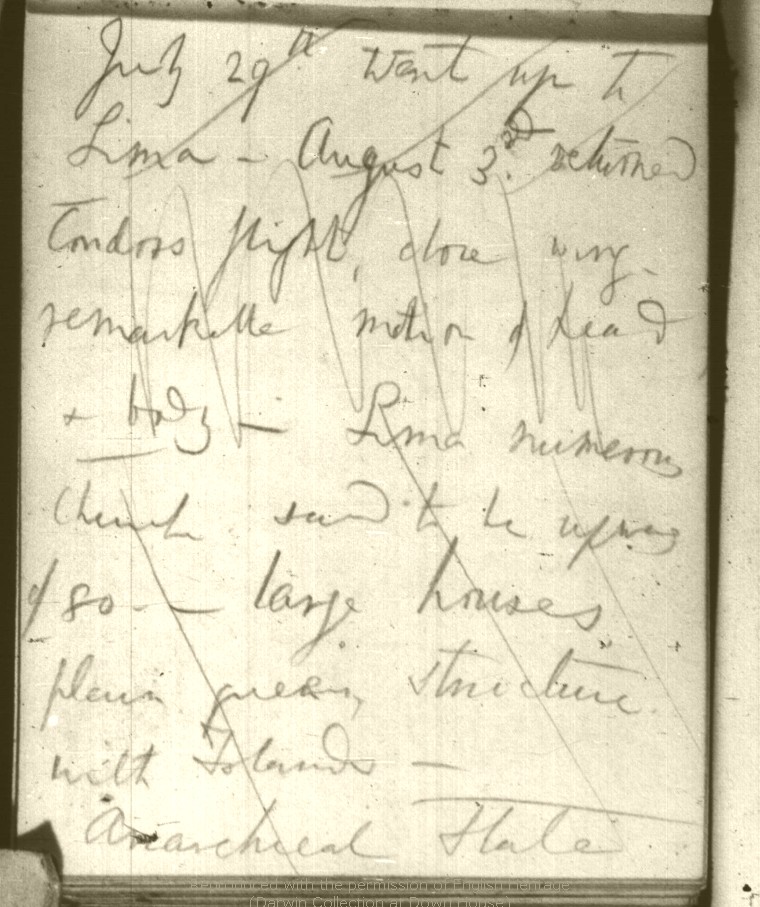 July 29th Went up to
Lima — August 3rd. returned
Condors flight, close wing
remarkable motion of head
+ body — Lima numerous
church said to be upwards
of 80 — large houses
plain queer, structure
with Islands —
Anarchical State
Reproduced with the permission of English Heritage
(Darwin Collection at Down House)